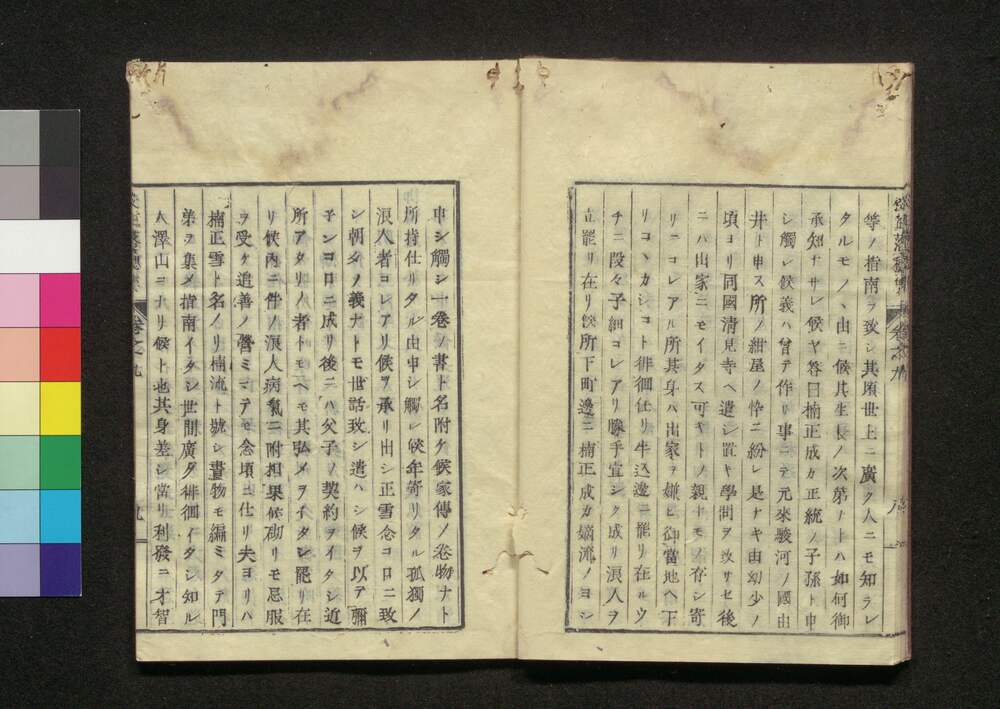 等ノ指南ヲ致シ其頃世上ニ廣ク人ニモ知ラレ
タルモノヽ由ニ候其生長ノ次第ナトハ如何御
承知ナサレ候ヤ答曰楠正成カ正統ノ子孫ト申
シ觸レ候義ハ曾テ作リ事ニテ元來駿河ノ國由
井ト申ス所ノ紺屋ノ忰ニ紛レ是ナキ由幼少ノ
頃ヨリ同國清見寺ヘ遣シ置キ學問ヲ致サセ後
ニハ出家ニモイタス可キトノ親トモノ存シ寄
リニコレアル所其身ハ出家ヲ嫌ヒ御當地ヘ下
リコヽカシコト徘徊仕リ牛込邊ニ罷リ在ルウ
チニ段々子細コレアリ勝手宜シク成リ浪人ヲ
立罷リ在リ候所下町邊ニ楠正成カ嫡流ノヨシ
申シ觸シ一卷ノ書ト名附ケ候家傳ノ卷物ナト
所持仕リタル由申シ觸レ候年寄リタル孤獨ノ
浪人者コレアリ候ヲ承リ出シ正雪念コロニ致
シ朝夕ノ義ナトモ世話致シ遣ハシ候ヲ以テ彌
子ンコロニ成リ後ニハ父子ノ契約ヲイタシ近
所アタリノ者トモヘモ其弘メヲイタシ罷リ在
リ候内ニ件ノ浪人病氣ニ附相果候砌リモ忌服
ヲ受ケ追善ノ營ミマテモ念頃ニ仕リ夫ヨリハ
楠正雪ト名ノリ楠流ト號シ書物モ編ミタテ門
弟ヲ集メ指南イタシ世間廣ク徘徊イタシ知ル
人澤山ヨナリ候ト也其身差シ當リ利發ニ才智
卷之九
九